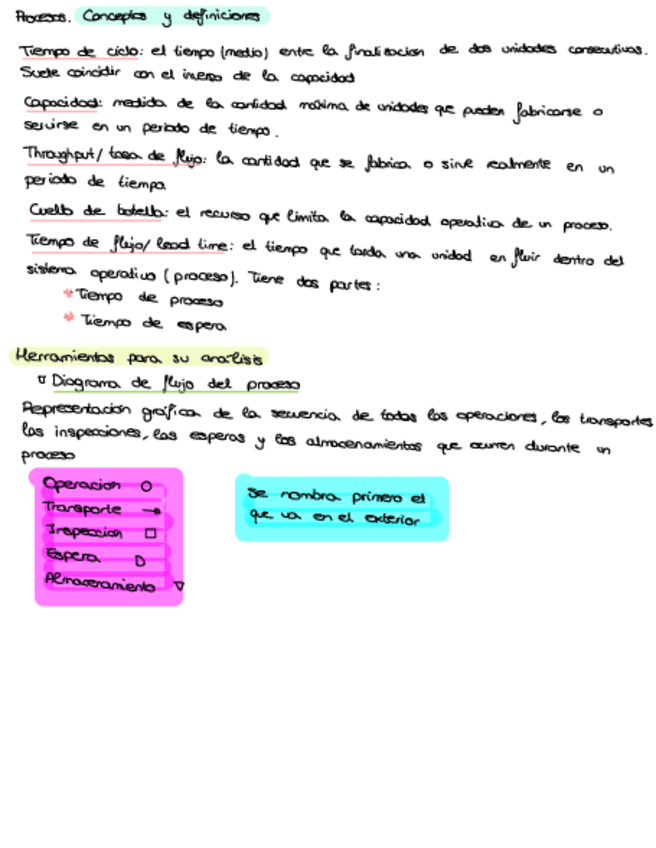 Procesos. Conceptos y definiciones
Tiempo de ciclo: el tiempo (medio) entre la finalizacion de dos unidades consecutivas.
Suele coincidir con el inverso de la capacidad
Capacidad: medida de la cantidad máxima de unidades que pueden fabricarse o
servirse en un periodo de tiempo.
Throughput/ tasa de flujo: la cantidad que se fabrica o sirve realmente en un
periodo de tiempo.
Cuello de botella: el recurso que limita la capacidad operativa de un proceso.
Tiempo de flujo/ lead time: el tiempo que tarda una unidad en fluir dentro del
sistema operativo (proceso). Tiene dos partes:
* Tiempo de proceso
* Tiempo de espera
Herramientas para su analisis
▽ Diagrama de flujo del proceso
Representación gráfica de la secuencia de todas las operaciones, los transportes
las inspecciones, las esperas y los almacenamientos que ocurren durante un
proceso
Operacion ○
Transporte →
Inspeccion □
Espera D
Almacenamiento ▽
Se nombra primero el
que va en el exterior